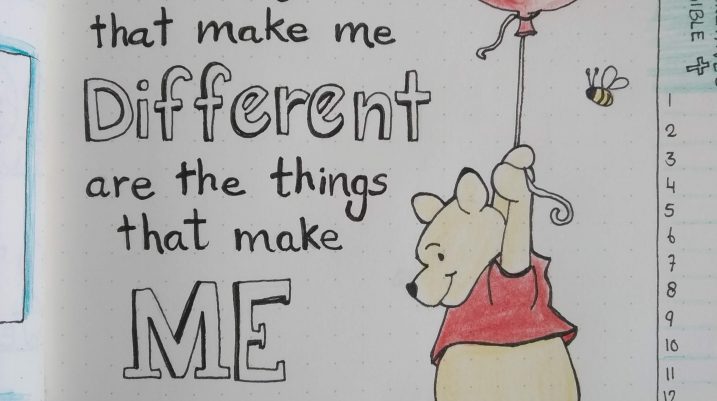 that make me
Different
are the things
that make
ME
IBLE
1
2
3
4
5
6
7
8
9
10
11
12